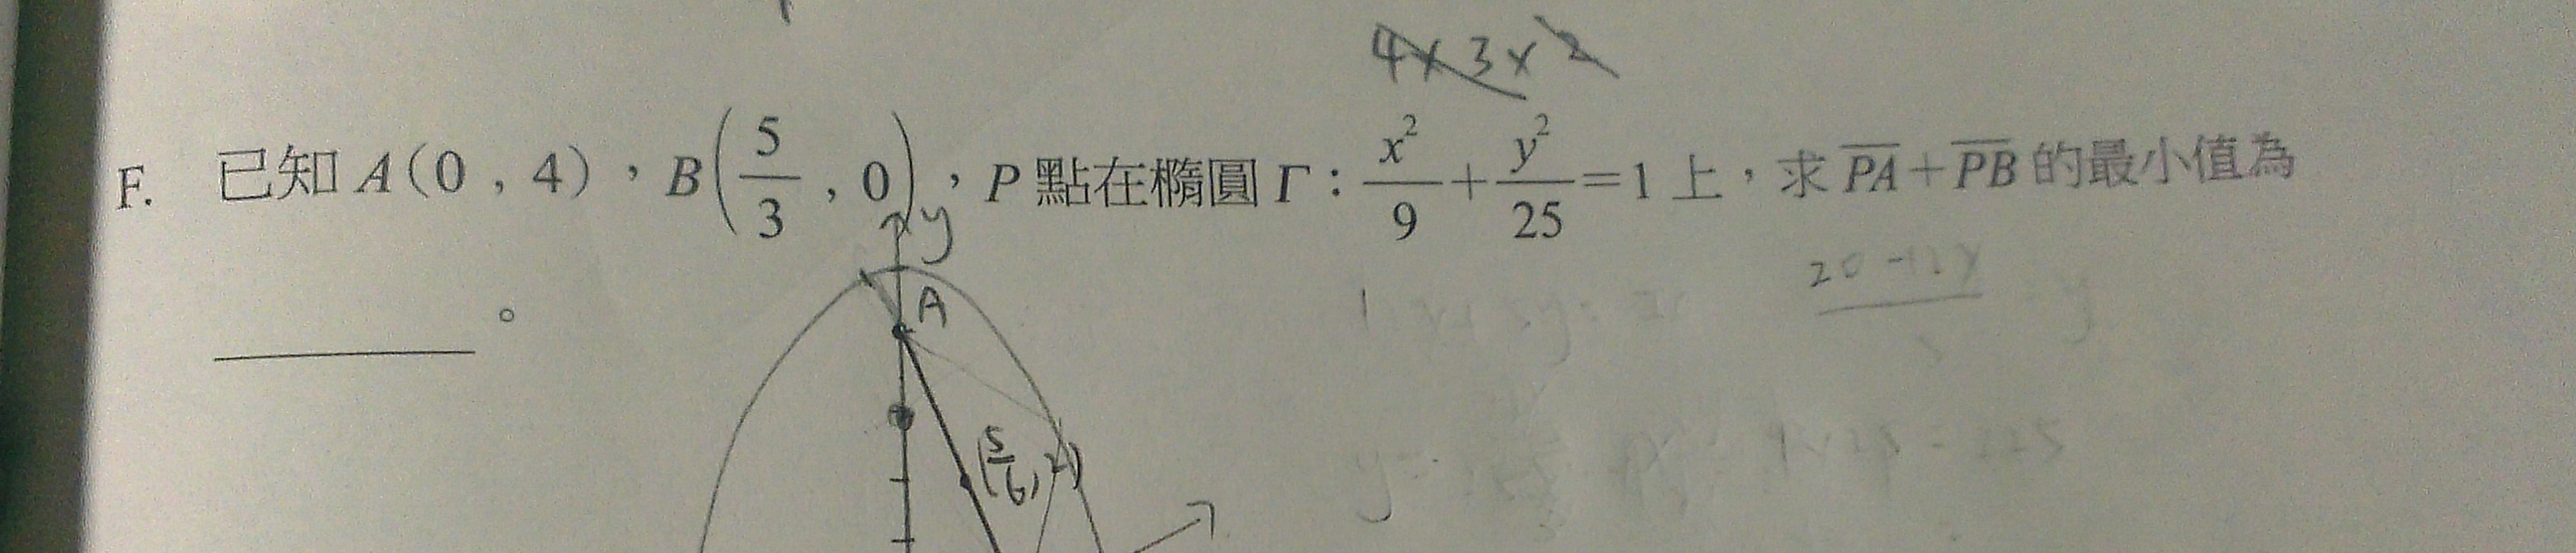 4×3×2
F. 已知 A(0 , 4) , B(5/3 , 0) , P 點在橢圓 Γ : x²/9 + y²/25 = 1 上 , 求 PA + PB 的最小值為
。
y
A
(5/6, 2)
20-12y
y
y=